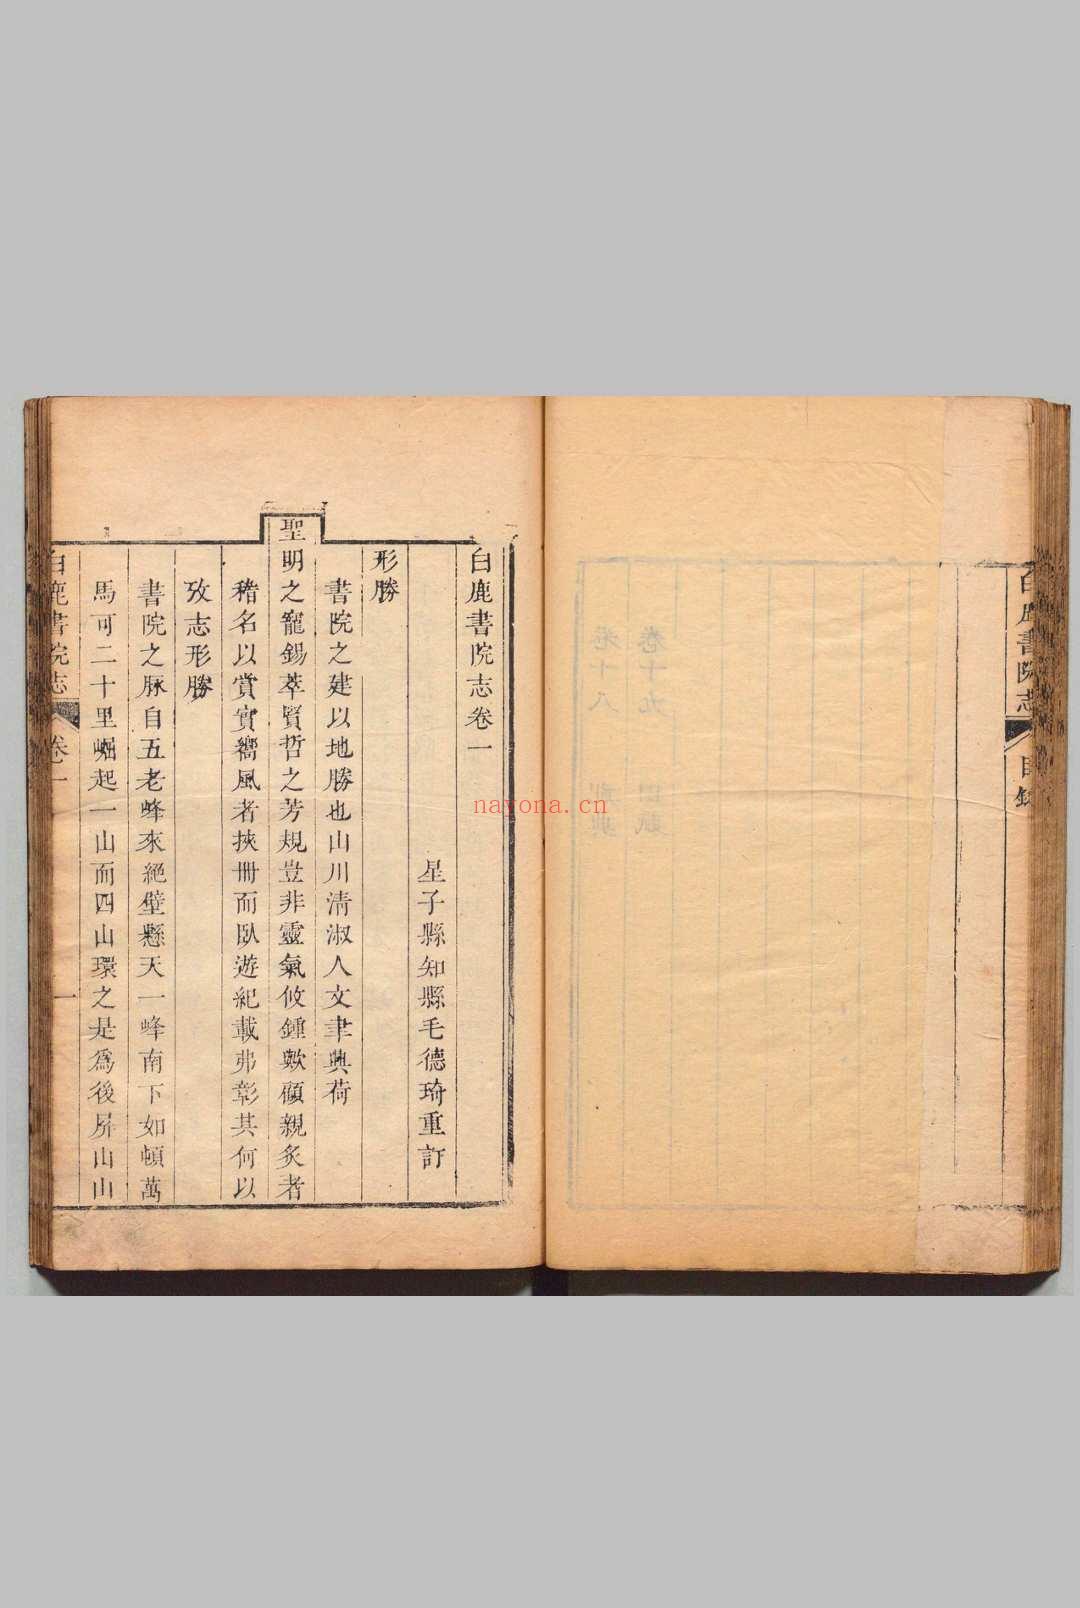 白鹿書院志
目錄
白鹿書院志卷一
星子縣知縣毛德琦重訂
形勝
書院之建以地勝也山川清淑人文聿興荷
聖明之寵錫萃賢哲之芳規豈非靈氣攸鍾歟顧親炙者
稽名以賞實嚮風者挾冊而臥遊紀載弗彰其何以
攷志形勝
書院之脉自五老峰來絕壁懸天一峰南下如頓萬
馬可二十里崛起一山而四山環之是為後屏山山
白鹿書院志
卷一
一
卷十八
卷十九
nayona.cn